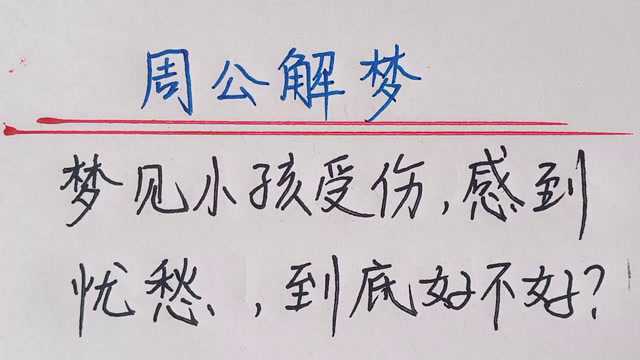 周公解梦
梦见小孩受伤,感到
忧愁,到底好不好?